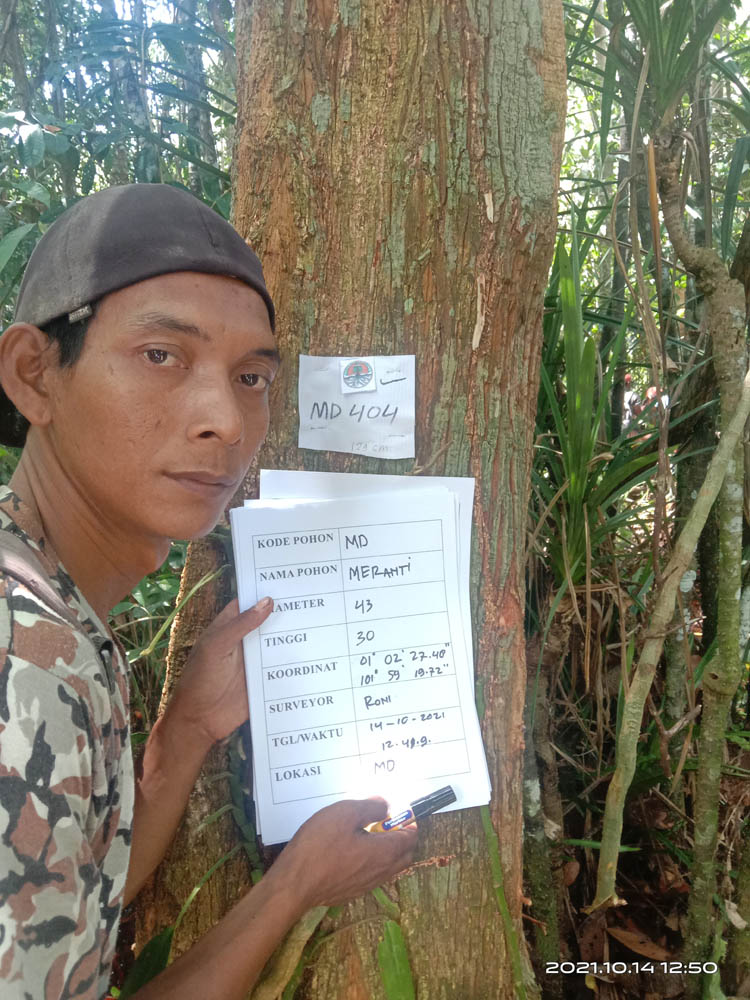 MD 404
KODE POHON MD
NAMA POHON MERANTI
DIAMETER 43
TINGGI 30
KOORDINAT 01° 02' 27.40"
101° 59' 19.72"
SURVEYOR RONI
TGL/WAKTU 14-10-2021
LOKASI MD
2021.10.14 12:50